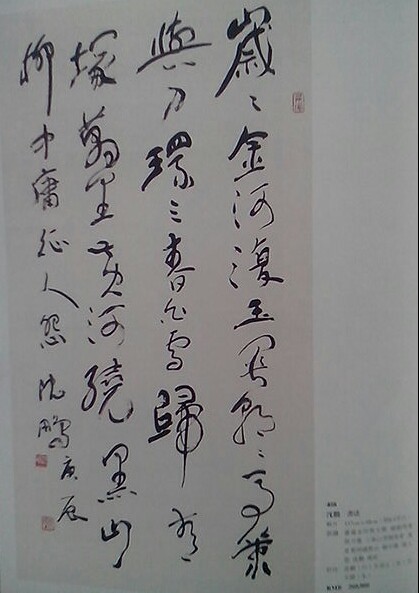 歲〻金河復玉關朝〻馬策
與刀環三春白雪歸青
塚萬里黃河繞黑山
柳中庸征人怨 沈鵬 庚辰
沈鹏 书法